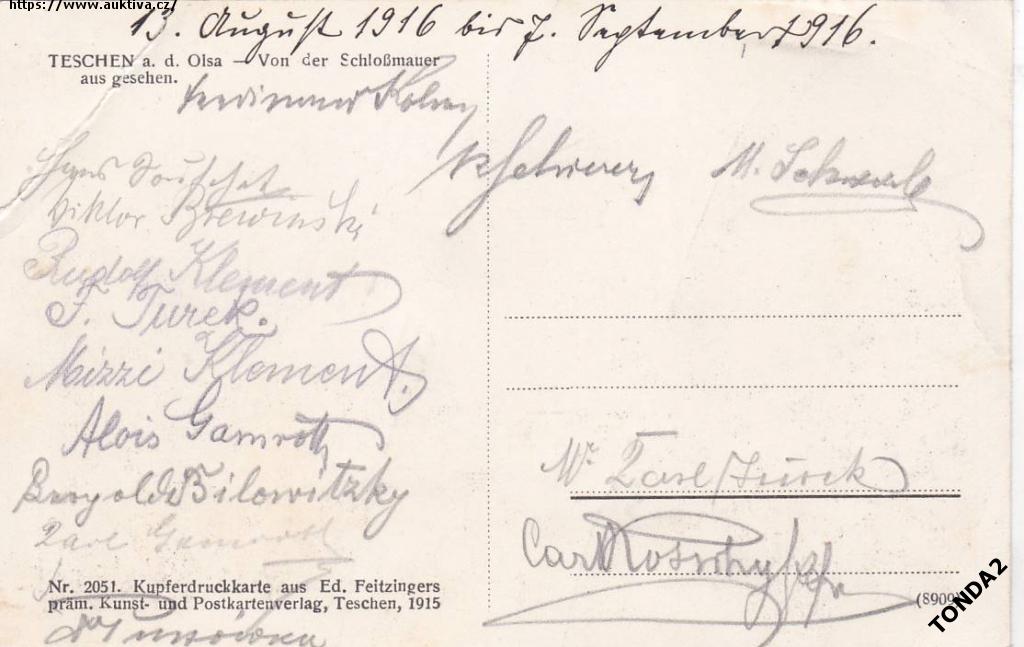 https://www.auktiva.cz/
13. August 1916 bis 7. September 1916.
TESCHEN a. d. Olsa – Von der Schloßmauer
aus gesehen.
Ferdinand
M. Schwarb
Hans
Viktor Brewinski
Rudolf Klement
F. Turek.
Mizzi Klement.
Alois Gamroth
Mr. Karl Turek
Bilowitzky
Karl Gamroth
Carl
Nr. 2051. Kupferdruckkarte aus Ed. Feitzingers
präm. Kunst- und Postkartenverlag, Teschen, 1915
(8909)
TONDA2